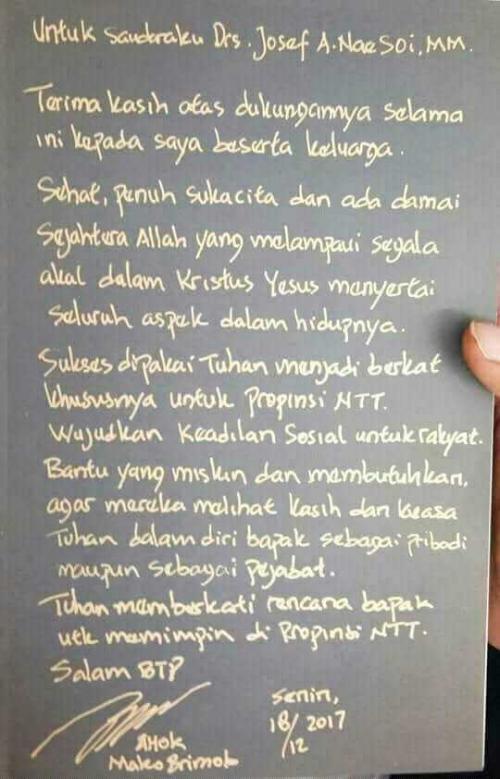 Untuk Saudaraku Drs. Josef A. Nae Soi, MM.
Terima kasih atas dukungannya selama
ini kepada saya beserta keluarga.
Sehat, penuh sukacita dan ada damai
Sejahtera Allah yang melampaui segala
akal dalam Kristus Yesus menyertai
Seluruh aspek dalam hidupnya.
Sukses dipakai Tuhan menjadi berkat
khususnya untuk Propinsi NTT.
Wujudkan Keadilan Sosial untuk rakyat.
Bantu yang miskin dan membutuhkan,
agar mereka melihat kasih dan kuasa
Tuhan dalam diri bapak sebagai pribadi
maupun sebagai pejabat.
Tuhan memberkati rencana bapak
utk memimpin di Propinsi NTT.
Salam BTP
Senin,
18/12 2017
AHok
Mako Brimob